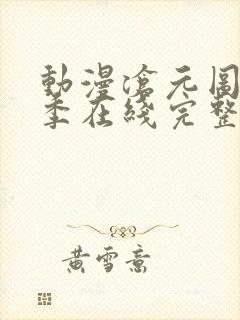 動漫滄元圖
季在綫完整
黃雪意